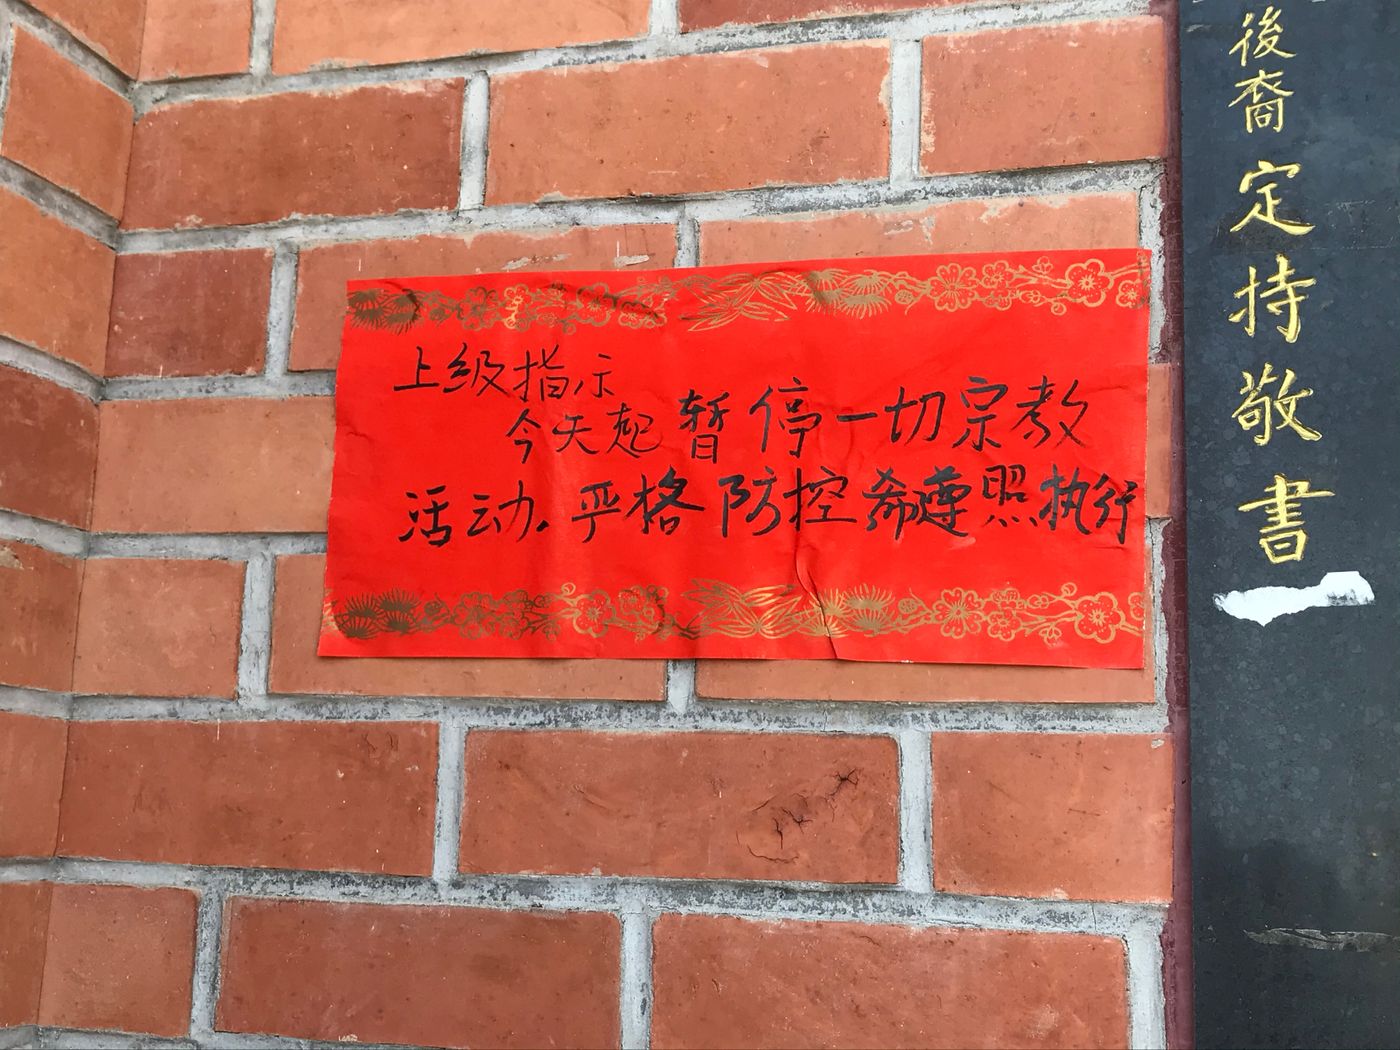 上级指示
今天起暂停一切宗教
活动.严格防控希遵照执行
後裔定持敬書